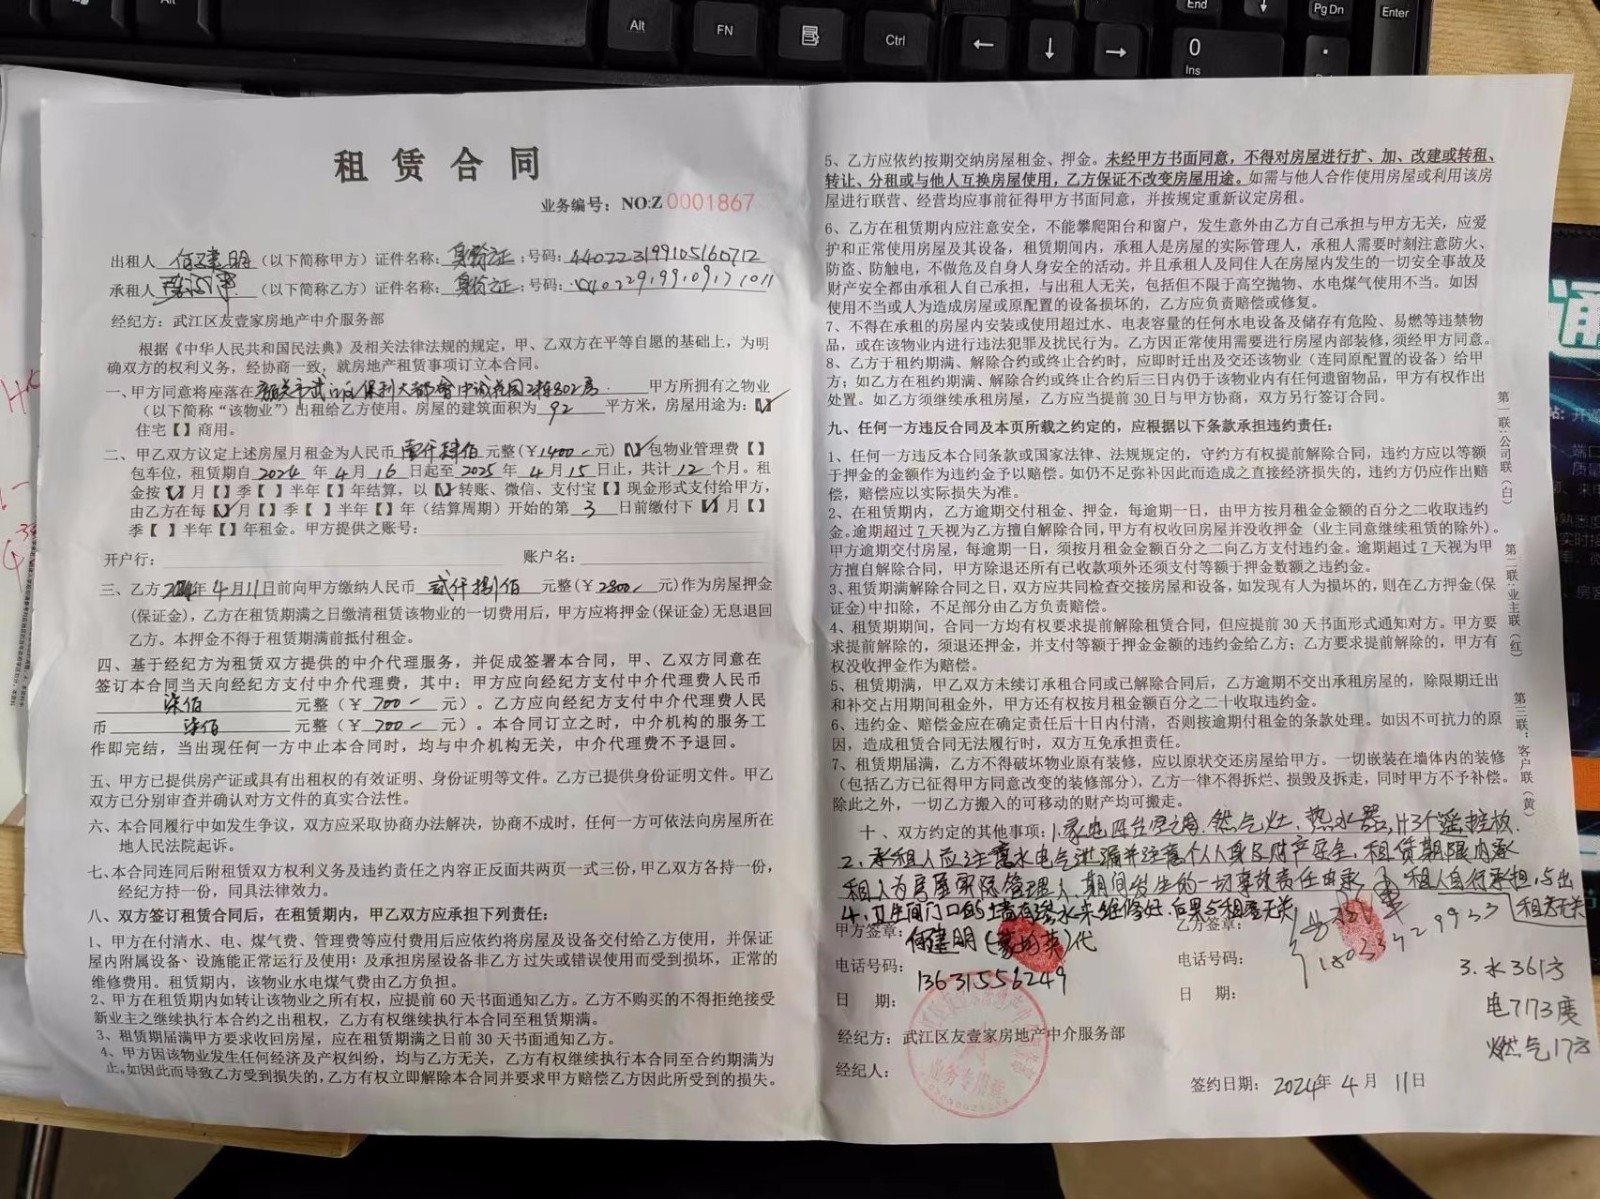 租 赁 合 同
业务编号：NO:Z 0001867
出租人 何建明 （以下简称甲方）证件名称：身份证：号码：440223199105160712
承租人 （以下简称乙方）证件名称：身份证：号码：
经纪方：武江区友壹家房地产中介服务部
根据《中华人民共和国民法典》及相关法律法规的规定，甲、乙双方在平等自愿的基础上，为明
确双方的权利义务，经协商一致，就房地产租赁事项订立本合同。
一、甲方同意将座落在韶关市武江区保利大都會中誠花园2栋802房 甲方所拥有之物业
（以下简称“该物业”）出租给乙方使用。房屋的建筑面积为 92 平方米，房屋用途为：【√】
住宅【 】商用。
二、甲乙双方议定上述房屋月租金为人民币 壹仟肆佰 元整（¥1400-元）【√】包物业管理费【 】
包车位，租赁期自 2024 年 4 月 16 日起至 2025 年 4 月 15 日止，共计 12 个月。租
金按【√】月【 】季【 】半年【 】年结算，以【√】转账、微信、支付宝【 】现金形式支付给甲方，
由乙方在每【√】月【 】季【 】半年【 】年（结算周期）开始的第 3 日前缴付下【√】月【 】
季【 】半年【 】年租金。甲方提供之账号：
开户行： 账户名：
三、乙方2024年4月11日前向甲方缴纳人民币 贰仟捌佰 元整（¥2800-元）作为房屋押金
(保证金)，乙方在租赁期满之日缴清租赁该物业的一切费用后，甲方应将押金(保证金)无息退回
乙方。本押金不得于租赁期满前抵付租金。
四、基于经纪方为租赁双方提供的中介代理服务，并促成签署本合同，甲、乙双方同意在
签订本合同当天向经纪方支付中介代理费，其中：甲方应向经纪方支付中介代理费人民币
柒佰 元整（¥ 700- 元）。乙方应向经纪方支付中介代理费人民
币 柒佰 元整（¥ 700- 元）。本合同订立之时，中介机构的服务工
作即完结，当出现任何一方中止本合同时，均与中介机构无关，中介代理费不予退回。
五、甲方已提供房产证或具有出租权的有效证明、身份证明等文件。乙方已提供身份证明文件。甲乙
双方已分别审查并确认对方文件的真实合法性。
六、本合同履行中如发生争议，双方应采取协商办法解决，协商不成时，任何一方可依法向房屋所在
地人民法院起诉。
七、本合同连同后附租赁双方权利义务及违约责任之内容正反面共两页一式三份，甲乙双方各持一份，
经纪方持一份，同具法律效力。
八、双方签订租赁合同后，在租赁期内，甲乙双方应承担下列责任：
1、甲方在付清水、电、煤气费、管理费等应付费用后应依约将房屋及设备交付给乙方使用，并保证
屋内附属设备、设施能正常运行及使用；及承担房屋设备非乙方过失或错误使用而受到损坏，正常的
维修费用。租赁期内，该物业水电煤气费由乙方负担。
2、甲方在租赁期内如转让该物业之所有权，应提前 60 天书面通知乙方。乙方不购买的不得拒绝接受
新业主之继续执行本合约之出租权，乙方有权继续执行本合同至租赁期满。
3、租赁期届满甲方要求收回房屋，应在租赁期满之日前 30 天书面通知乙方。
4、甲方因该物业发生任何经济及产权纠纷，均与乙方无关，乙方有权继续执行本合同至合约期满为
止。如因此而导致乙方受到损失的，乙方有权立即解除本合同并要求甲方赔偿乙方因此所受到的损失。
5、乙方应依约按期交纳房屋租金、押金。未经甲方书面同意，不得对房屋进行扩、加、改建或转租、
转让、分租或与他人互换房屋使用，乙方保证不改变房屋用途。如需与他人合作使用房屋或利用该房
屋进行联营、经营均应事前征得甲方书面同意，并按规定重新议定房租。
6、乙方在租赁期内应注意安全，不能攀爬阳台和窗户，发生意外由乙方自己承担与甲方无关，应爱
护和正常使用房屋及其设备，租赁期间内，承租人是房屋的实际管理人，承租人需要时刻注意防火、
防盗、防触电，不做危及自身人身安全的活动。并且承租人及同住人在房屋内发生的一切安全事故及
财产安全都由承租人自己承担，与出租人无关，包括但不限于高空抛物、水电煤气使用不当。如因
使用不当或人为造成房屋或原配置的设备损坏的，乙方应负责赔偿或修复。
7、不得在承租的房屋内安装或使用超过水、电表容量的任何水电设备及储存有危险、易燃等违禁物
品，或在该物业内进行违法犯罪及扰民行为。乙方因正常使用需要进行房屋内部装修，须经甲方同意。
8、乙方于租约期满、解除合约或终止合约时，应即时迁出及交还该物业（连同原配置的设备）给甲
方；如乙方在租约期满、解除合约或终止合约后三日内仍于该物业内有任何遗留物品，甲方有权作出
处置。如乙方须继续承租房屋，乙方应当提前 30 日与甲方协商，双方另行签订合同。
九、任何一方违反合同及本页所载之约定的，应根据以下条款承担违约责任：
1、任何一方违反本合同条款或国家法律、法规规定的，守约方有权提前解除合同，违约方应以等额
于押金的金额作为违约金予以赔偿。如仍不足弥补因此而造成之直接经济损失的，违约方仍应作出赔
偿，赔偿应以实际损失为准。
2、在租赁期内，乙方逾期交付租金、押金，每逾期一日，由甲方按月租金金额的百分之二收取违约
金。逾期超过 7 天视为乙方擅自解除合同，甲方有权收回房屋并没收押金（业主同意继续租赁的除外）。
甲方逾期交付房屋，每逾期一日，须按月租金金额百分之二向乙方支付违约金。逾期超过 7 天视为甲
方擅自解除合同，甲方除退还所有已收款项外还须支付等额于押金数额之违约金。
3、租赁期满解除合同之日，双方应共同检查交接房屋和设备，如发现有人为损坏的，则在乙方押金(保
证金)中扣除，不足部分由乙方负责赔偿。
4、租赁期期间，合同一方均有权要求提前解除租赁合同，但应提前 30 天书面形式通知对方。甲方要
求提前解除的，须退还押金，并支付等额于押金金额的违约金给乙方；乙方要求提前解除的，甲方有
权没收押金作为赔偿。
5、租赁期满，甲乙双方未续订承租合同或已解除合同后，乙方逾期不交出承租房屋的，除限期迁出
和补交占用期间租金外，甲方还有权按月租金额百分之二十收取违约金。
6、违约金、赔偿金应在确定责任后十日内付清，否则按逾期付租金的条款处理。如因不可抗力的原
因，造成租赁合同无法履行时，双方互免承担责任。
7、租赁期届满，乙方不得破坏物业原有装修，应以原状交还房屋给甲方。一切嵌装在墙体内的装修
（包括乙方已征得甲方同意改变的装修部分），乙方一律不得拆烂、损毁及拆走，同时甲方不予补偿。
除此之外，一切乙方搬入的可移动的财产均可搬走。
十、双方约定的其他事项：1.家电四台空调、燃气灶、热水器，计3个遥控板.
2.承租人应注意水电气泄漏并注意个人人身及财产安全，租赁期限内承
租人为房屋实际管理人，期间发生的一切事故责任由承租人自行承担，与出
租者无关
4.卫生间门口的土墙有渗水未维修好，后果与租者无关
甲方签章： 何建明 代
乙方签章：
电话号码： 13631556249
电话号码： 18023729933
日 期：
日 期：
3.水361方
电7173度
燃气17方
经纪方：武江区友壹家房地产中介服务部
经纪人：
业务专用章
签约日期：2024年 4 月 11日
第一联：公司联（白）
第二联：业主联（红）
第三联：客户联（黄）
Alt
FN
Ctrl
0
Ins
End
PgDn
Enter